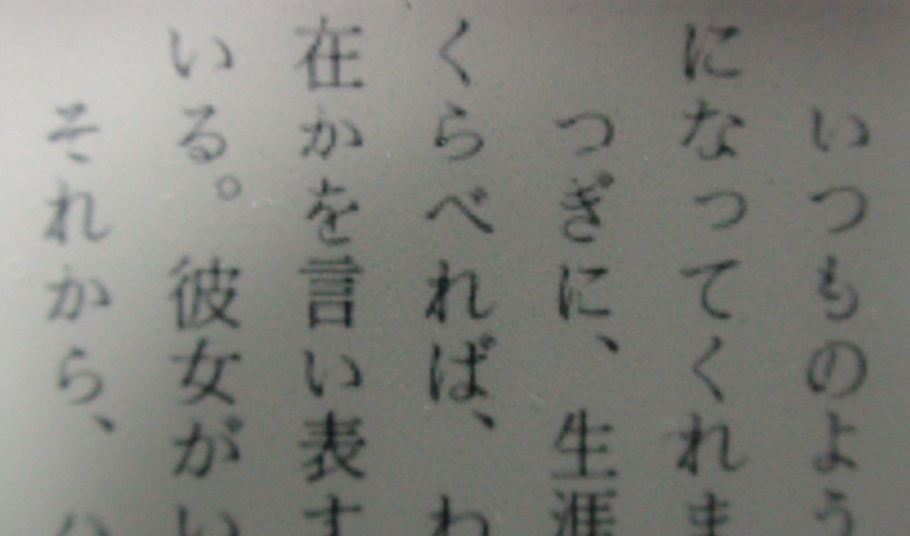 いつものよう
になってくれま
つぎに、生涯
くらべれば、わ
在かを言い表す
いる。彼女がい
それから、ハ